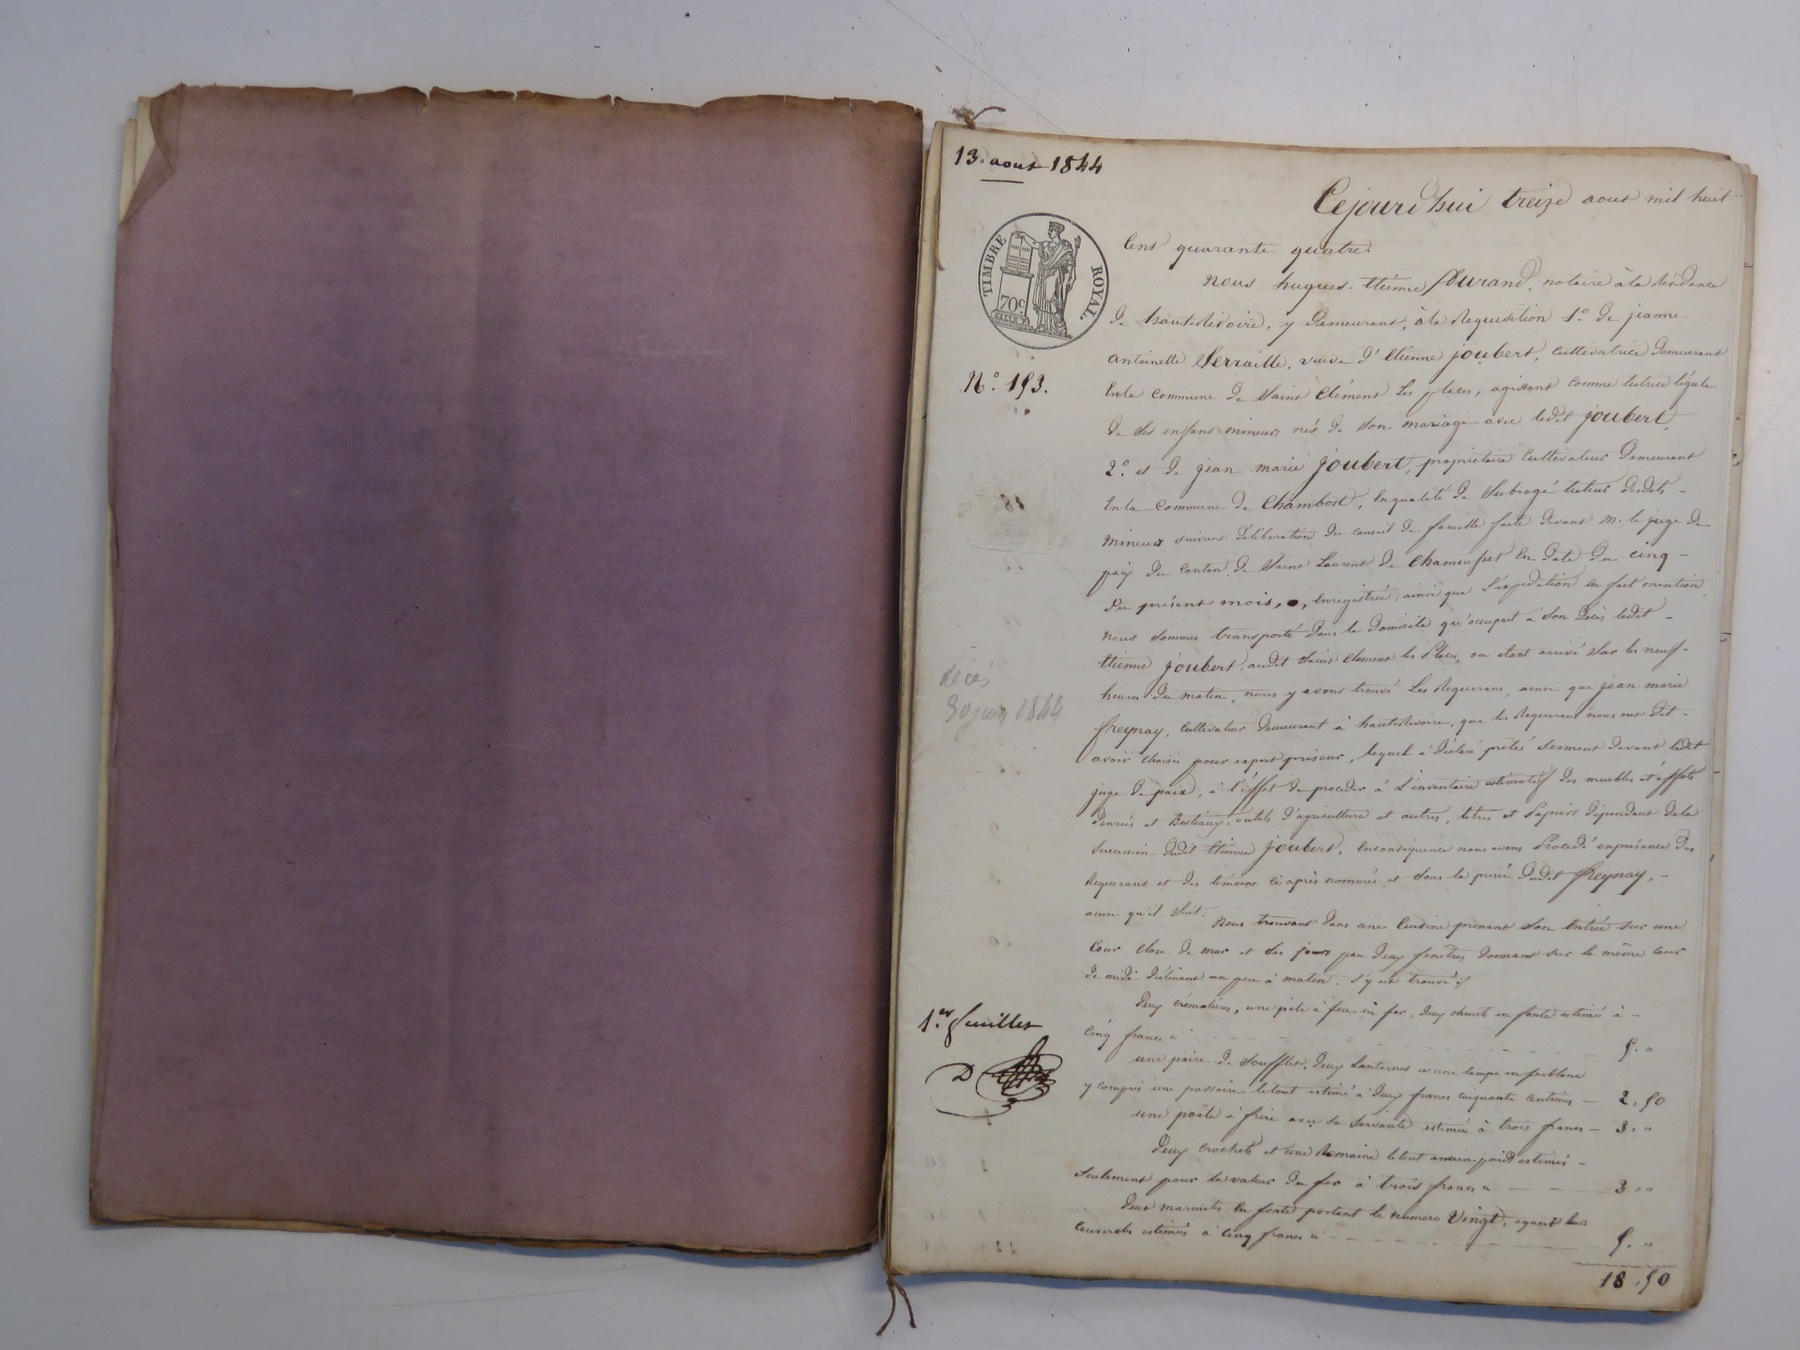 13. aout 1844
Cejourd'hui treize aout mil huit
TIMBRE ROYAL.
70c
Cent quarante quatre.
Nous hugues-Etienne Durand, notaire à la Résidence
de hauterivoire, y demeurant, à la Requisition 1.° de jeanne
antoinette Serraille, veuve d'Etienne joubert, cultivatrice demeurant
N.° 153.
En la commune de Saint Clément Les places, agissant comme tutrice légale
de ses enfans mineurs nés de son mariage avec ledit joubert,
2.° et de jean marie joubert, propriétaire Cultivateur demeurant
En la Commune de Chambost, En qualité de Subrogé tuteur desdits -
mineurs suivant délibération du conseil de famille faite devant M. le juge de
paix du Canton de Saint Laurent de Chamousset En date du cinq -
du présent mois, , Enregistrée, ainsi que l'expédition en fait mention,
nous sommes transporté dans le domicile qu'occupait à son décès ledit -
Etienne joubert, audit Saint Clement les Places, ou etant arrivé sur les neuf -
décès
30 juin 1844
heures du matin, nous y avons trouvé Les Requerans, ainsi que jean marie
freynay, Cultivateur demeurant à hauterivoire, que les Requerans nous ont dit -
avoir choisi pour expert priseur, lequel à déclaré prêté Serment devant ledit
juge de paix, à l'éffet de proceder à L'inventaire estimatif des meubles et éffets
denrées et Bestiaux, outils d'agriculture et autres, titres et Papiers dépendant de la
Succession dudit Etienne joubert, En conséquence nous avons Procédé en présence des
Requerans et des témoins ci après nommés et sous la prisée dudit freynay, -
ainsi qu'il Suit:
Nous trouvant dans une Cuisine prenant Son Entrée sur une
Cour Close de mur et ses jours par deux fenêtres donnant sur la même cour
de midi déclinant un peu à matin. s'y est trouvé:
1.er feuillet
Deux crémalières, une pèle à feu en fer, deux chenets en fonte estimés à -
Cinq francs ci 5. "
une paire de Soufflet, deux Lanternes et une lampe en ferblanc
D
y compris une passoire le tout estimé à deux francs cinquante centimes - 2. 50
une poële à frire avec sa Servante estimés à trois francs - 3. "
Deux crochets et une Romaine le tout ancien poids estimés -
Seulement pour la valeur du fer à trois francs ci 3. "
Deux marmites En fonte portent le numero Vingt, ayant leurs
Couvercles estimés à Cinq francs ci 5. "
18. 50